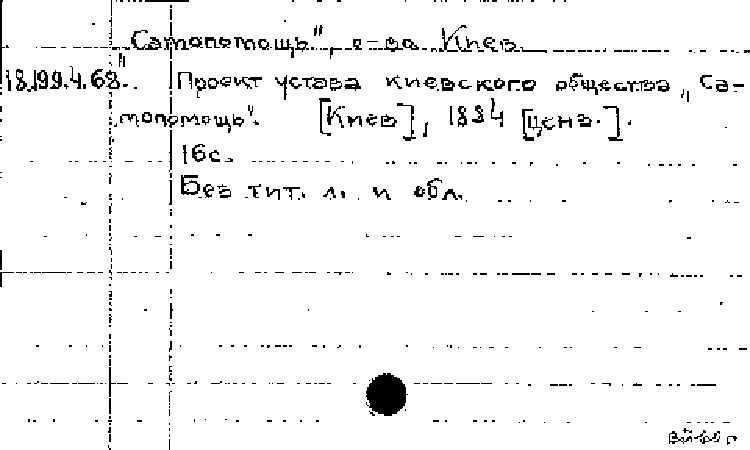 „Самопомощь", о-во. Киев.
18.199.4.68. Проект устава киевского общества „Са-
мопомощь". [Киев], 1884 [ценз.].
16с.
Без тит. л. и обл.